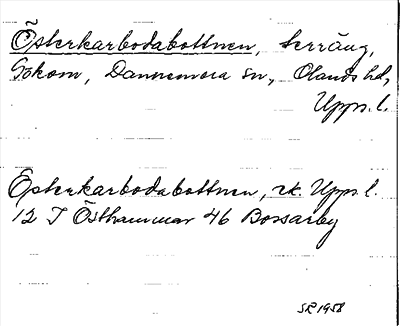 Österkarbodabottnen, terräng,
Gokom, Dannemora sn, Olands hd,
Upps. l.
Österkarbodabottnen, rk. Upps. l.
12 I Östhammar 46 Bossarby
SR 1958